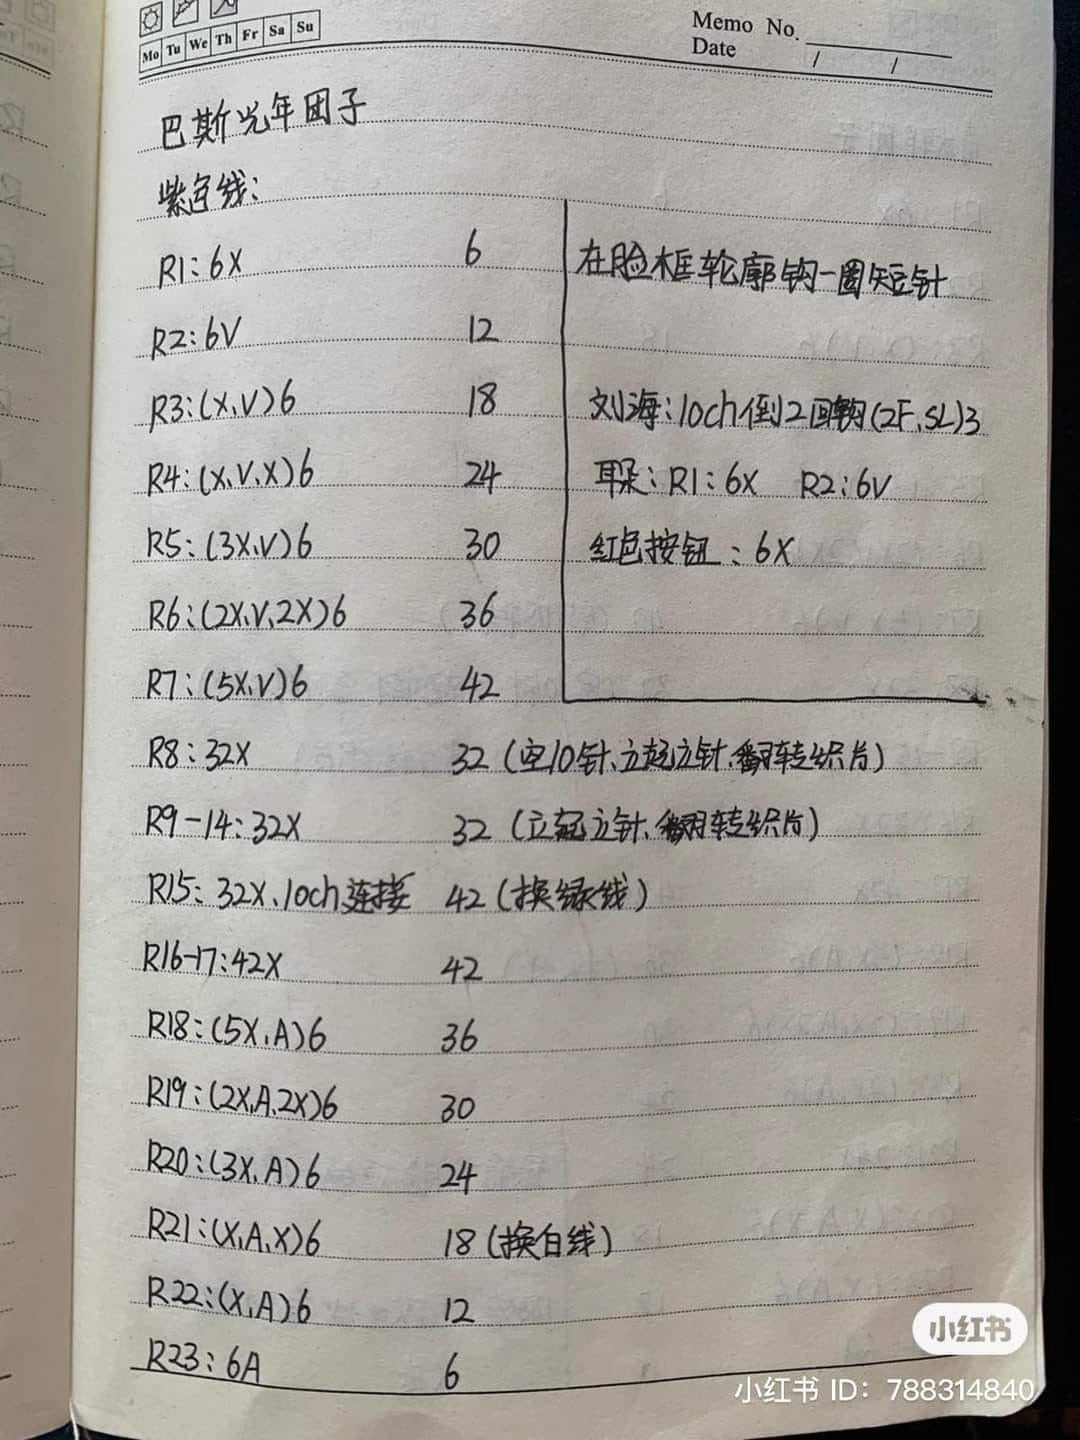 Memo No.
Date / /
Mo Tu We Th Fr Sa Su
巴斯光年团子
紫色线:
R1:6X 6
R2:6V 12
R3:(X,V)6 18
R4:(X,V,X)6 24
R5:(3X,V)6 30
R6:(2X,V,2X)6 36
R7:(5X,V)6 42
在脸框轮廓钩一圈短针
刘海:10ch倒2回钩(2F,SL)3
耳朵:R1:6X R2:6V
红色按钮:6X
R8:32X 32(空10针、立起立针、翻转织片)
R9-14:32X 32(立起立针、翻转织片)
R15:32X、10ch连接 42(换绿线)
R16-17:42X 42
R18:(5X,A)6 36
R19:(2X,A,2X)6 30
R20:(3X,A)6 24
R21:(X,A,X)6 18(换白线)
R22:(X,A)6 12
R23:6A 6
小红书
小红书 ID: 788314840